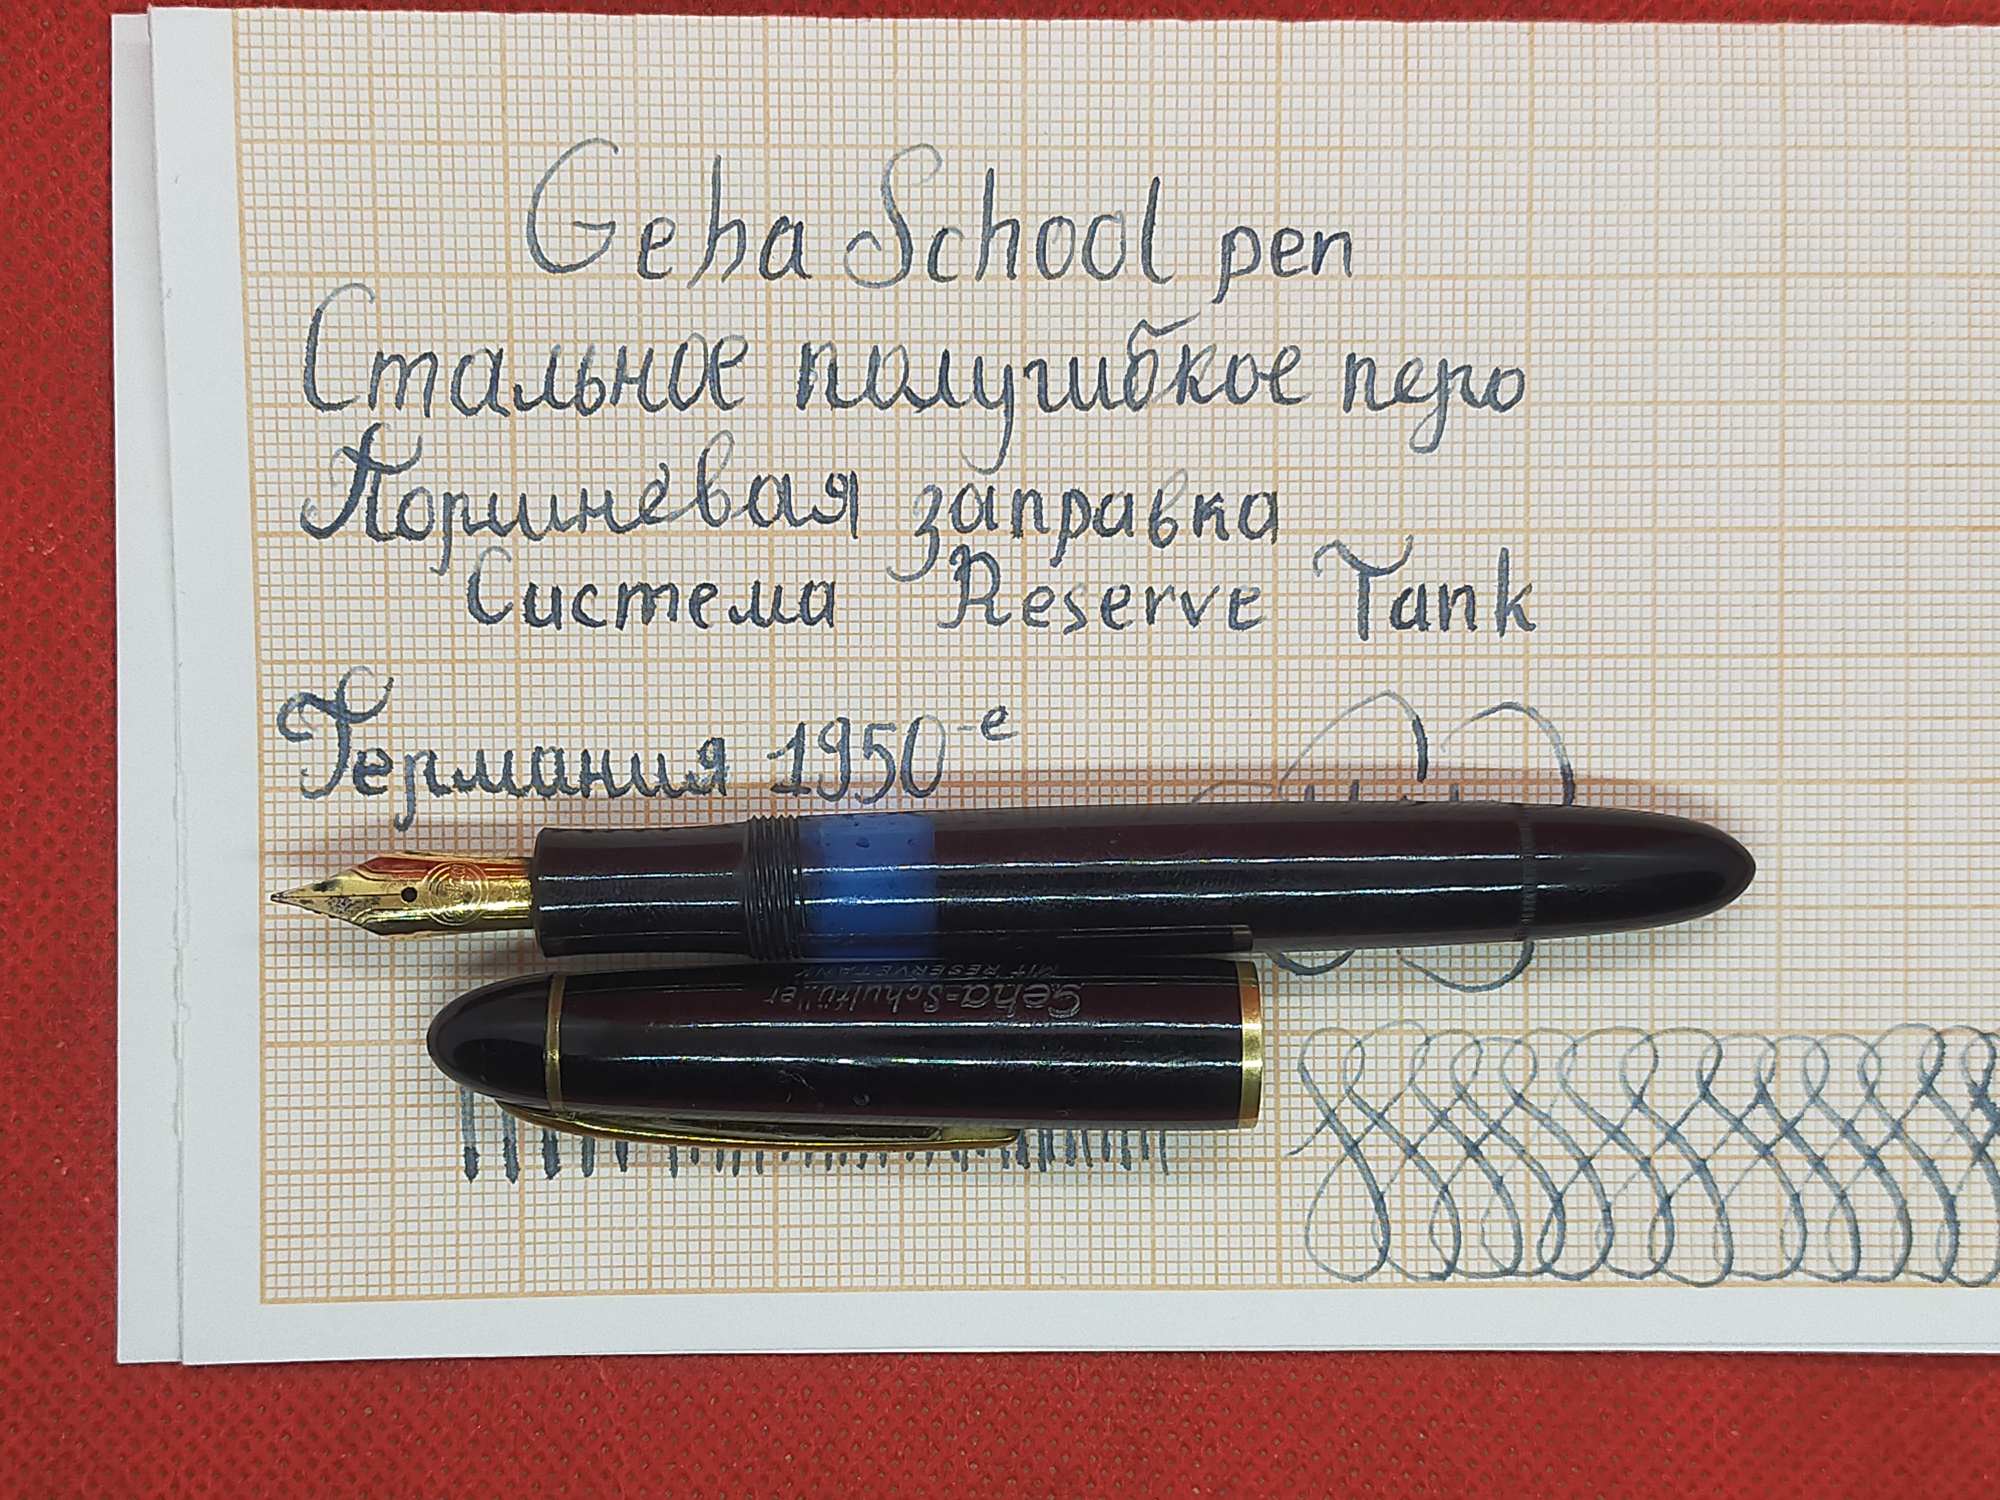 Geha School pen
Стальное полугибкое перо
Поршневая заправка
Система Reserve Tank
Германия 1950-е
Geha-Schulfüller
MIT RESERVETANK